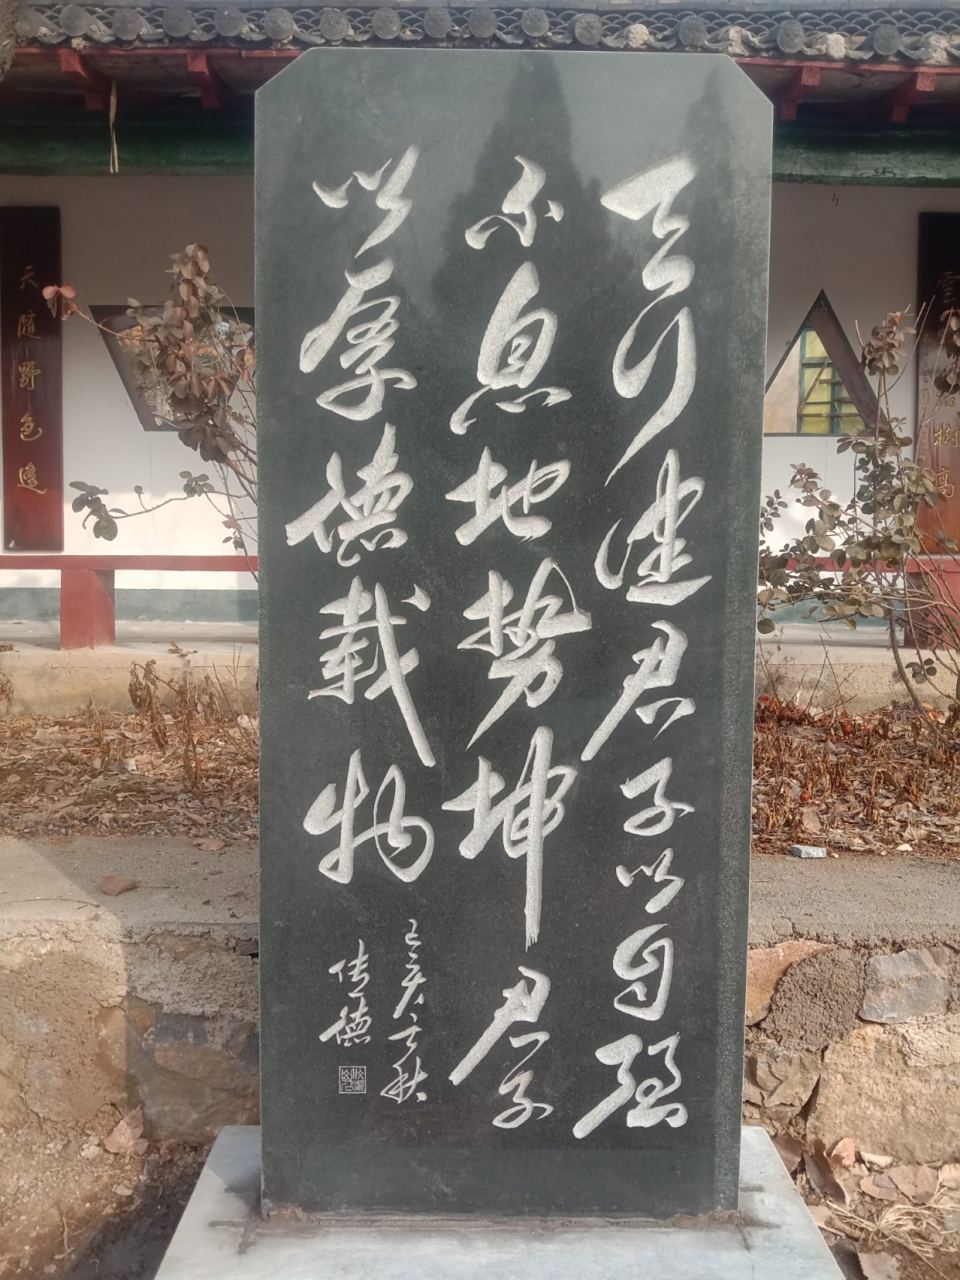 天行健君子以自强
不息地势坤君子
以厚德载物
己亥之秋
传德
天随野色遥